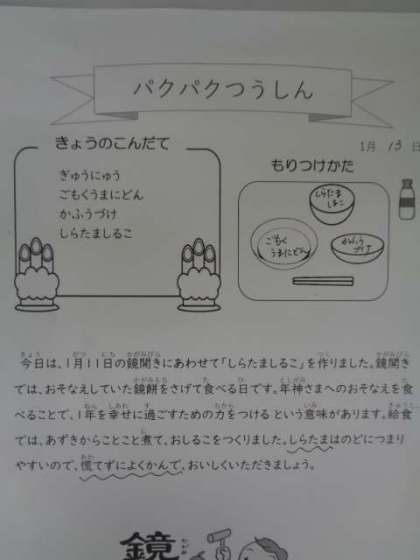 パクパクつうしん
1月 13 日
きょうのこんだて
ぎゅうにゅう
ごもくうまにどん
かふうづけ
しらたましるこ
もりつけかた
しらたま
しるこ
ごもく
うまにどん
かふう
づけ
今日は、1月11日の鏡開きにあわせて「しらたましるこ」を作りました。鏡開き
では、おそなえしていた鏡餅をさげて食べる日です。年神さまへのおそなえを食
べることで、1年を幸せに過ごすための力をつけるという意味があります。給食
では、あずきからことこと煮て、おしるこをつくりました。しらたまはのどにつまり
やすいので、慌てずによくかんで、おいしくいただきましょう。
鏡